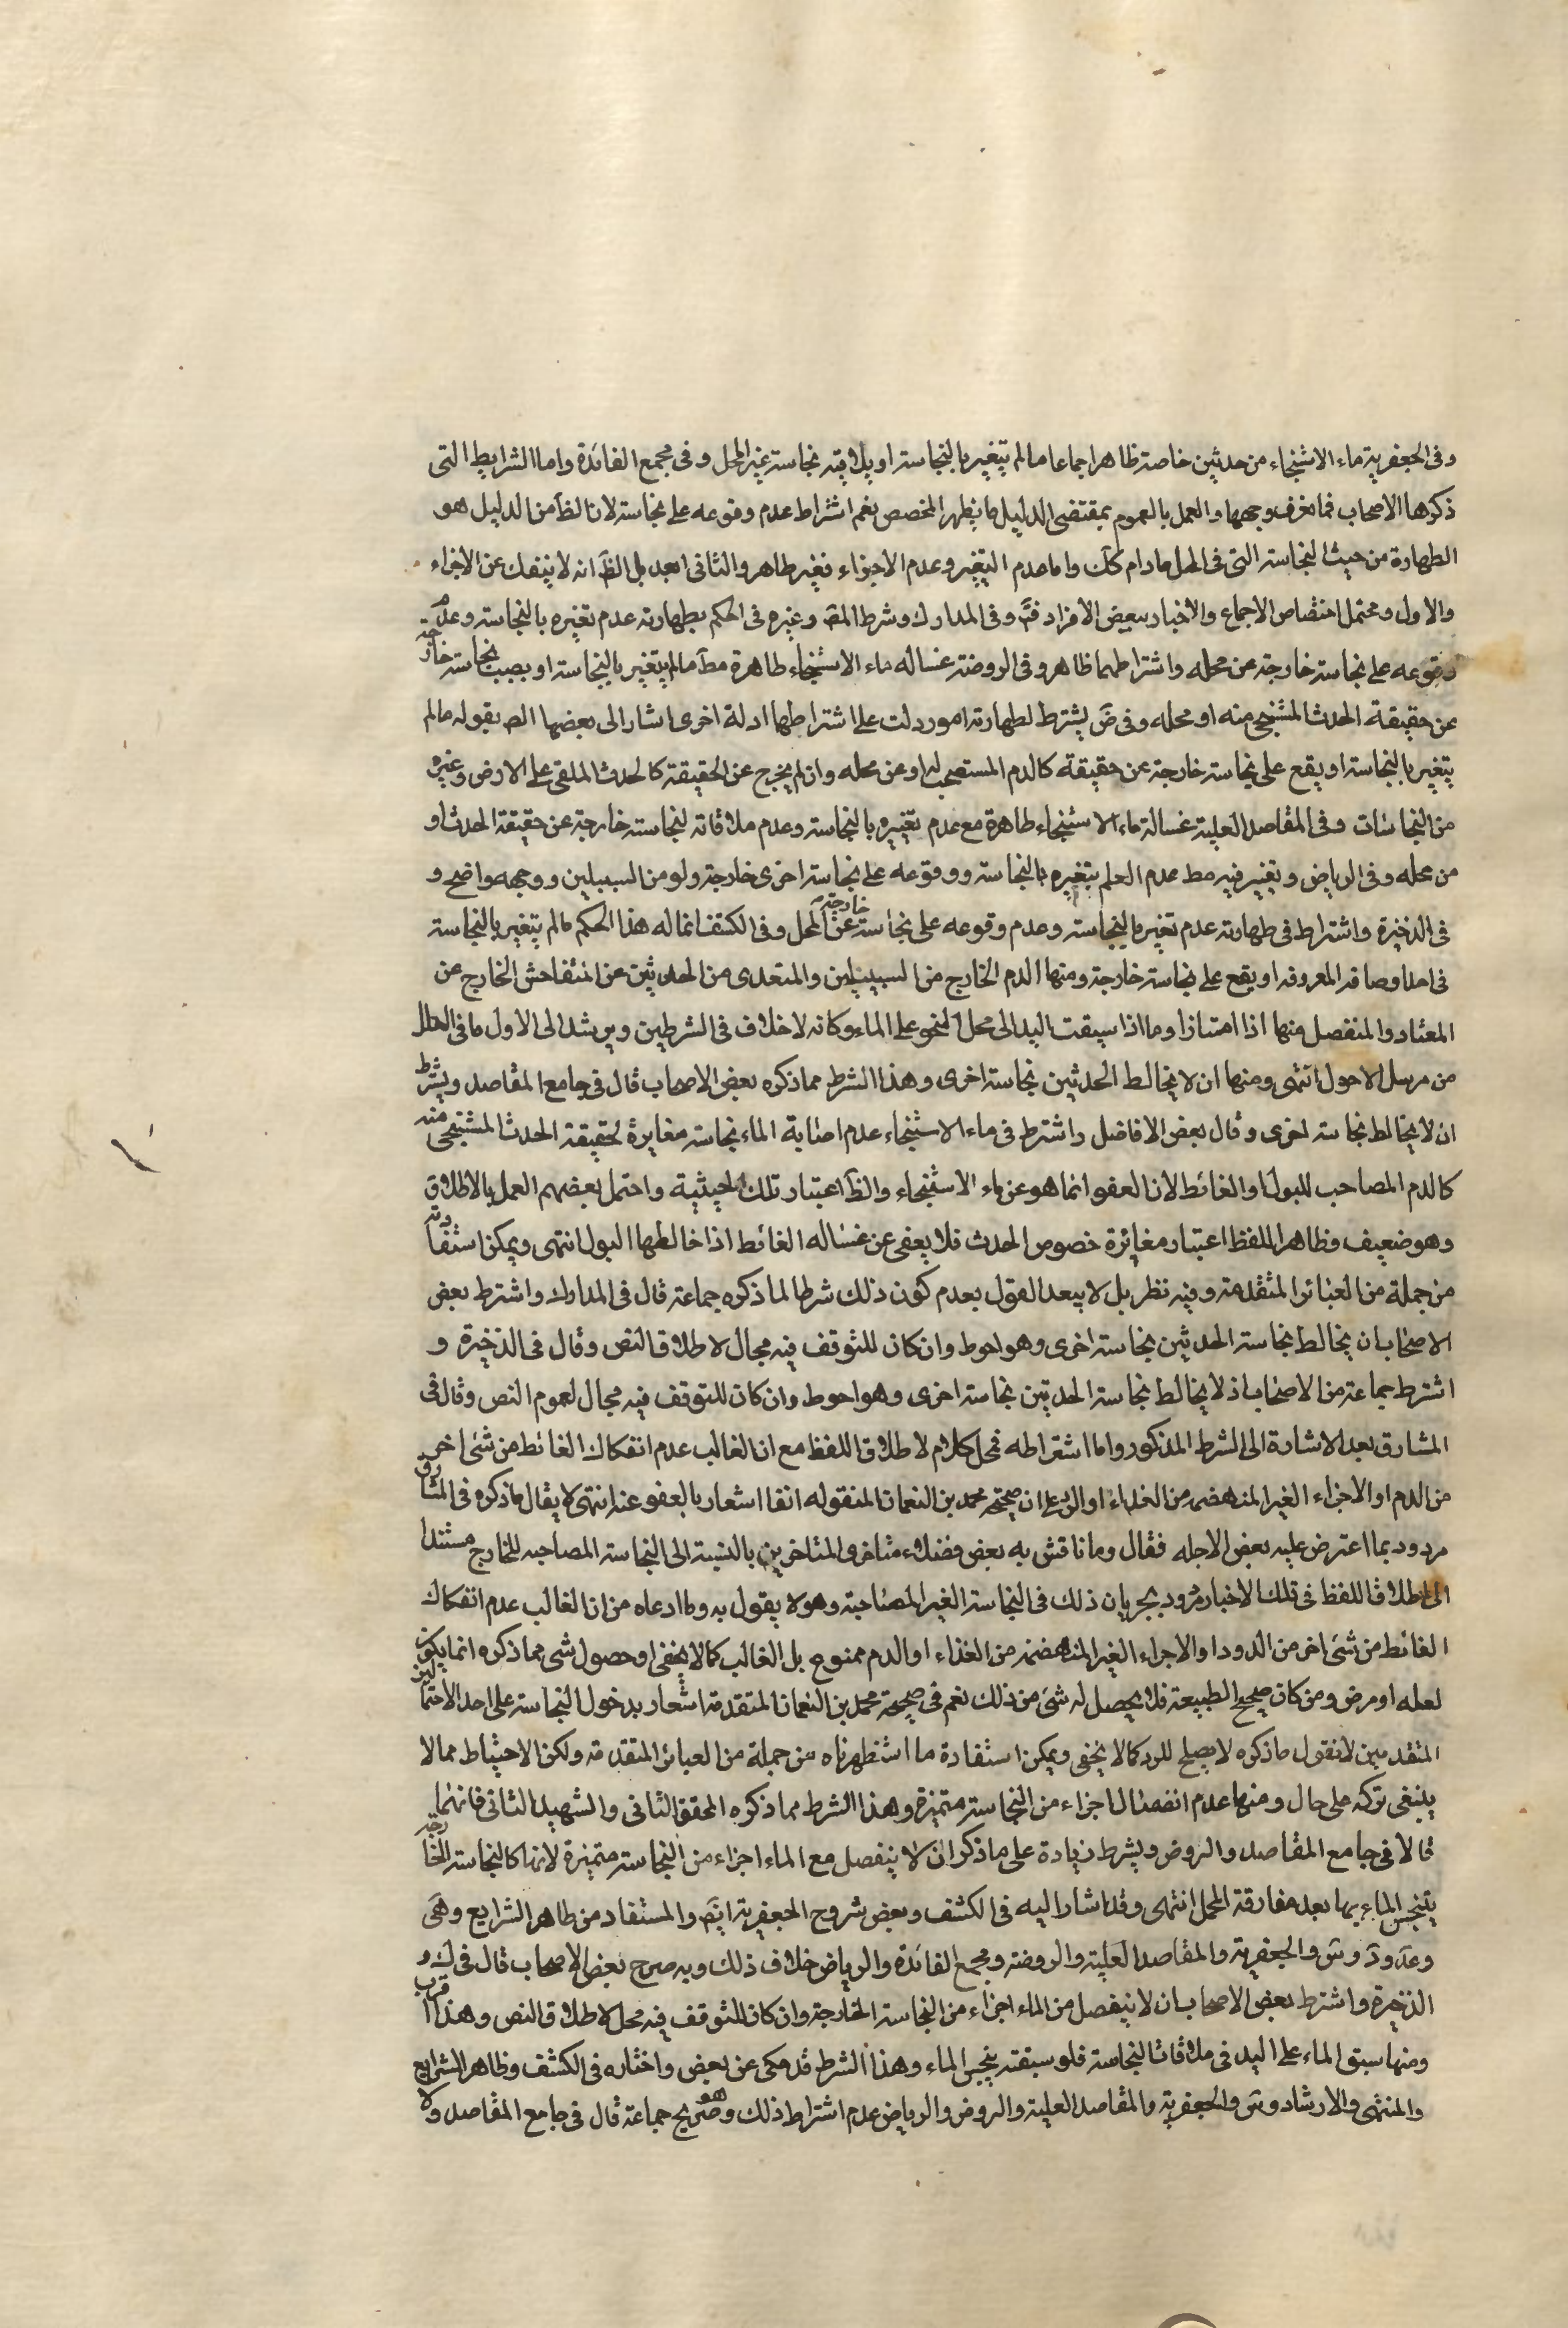 وفى الجعفرية ماء الاستنجاء من حدثين خاصة ظاهر اجماعا ما لم يتغير بالنجاسة او يلاقيه نجاسة غير المحل وفى مجمع الفائدة واما الشرايط التى
ذكرها الاصحاب فما نعرف وجهها والعمل بالعموم بمقتضى الدليل ما يظهر المخصص نعم اشتراط عدم وقوعه على نجاسة لان الظ من الدليل هو
الطهارة من حيث النجاسة التى فى المحل ما دام كك واما عدم التغير وعدم الاجزاء فغير ظاهر والثانى ابعد بل الظ انه لا ينفك عن الاجزاء
والاول ويحتمل اختصاص الاجماع والاخبار ببعض الافراد فت وفى المدارك وشرط المص وغيره فى الحكم بطهارته عدم تغيره بالنجاسة وعدم
وقوعه على نجاسة خارجة عن محله واشتراطهما ظاهر وفى الروضة غساله ماء الاستنجاء طاهرة مط ما لم يتغير بالنجاسة او يصب نجاسة خارجة
عن حقيقة الحدث المستنجى منه او محله وفى ض يشترط لطهارته امور دلت على اشتراطها ادلة اخرى اشار الى بعضها المص بقوله ما لم
يتغير بالنجاسة او يقع على نجاسة خارجة عن حقيقة كالدم المستصحب له او عن محله وان لم يخرج عن الحقيقة كالحدث الملقى على الارض وغيره
من النجاسات وفى المقاصد العلية غسالة ماء الاستنجاء طاهرة مع عدم تغييره بالنجاسة وعدم ملاقاته لنجاسة خارجة عن حقيقة الحدث او
من محله وفى الرياض وتغير فيه مط عدم العلم بتغيره بالنجاسة ووقوعه على نجاسة اخرى خارجة ولو من السبيلين ووجهه واضح و
فى الذخيرة واشترط فى طهارته عدم تغيره بالنجاسة وعدم وقوعه على نجاسة خارجة عن المحل وفى الكشف انما له هذا الحكم ما لم يتغير بالنجاسة
فى احد اوصافه المعروفه او يقع على نجاسة خارجة ومنها الدم الخارج من السبيلين والمتعدى من الحدثين عن المتفاحش الخارج عن
المعتاد والمنفصل منها اذا امتازا وما اذا سبقت اليد الى محل النجو على الماء وكانه لا خلاف فى الشرطين ويرشد الى الاول ما فى العلل
من مرسل الاحول انتهى ومنها ان لا يخالط الحدثين نجاسة اخرى وهذا الشرط مما ذكره بعض الاصحاب قال فى جامع المقاصد ويشترط
ان لا يخالط نجاسة اخرى وقال بعض الافاضل واشترط فى ماء الاستنجاء عدم اصابة الماء نجاسة مغايرة لحقيقة الحدث المستنجى منه
كالدم المصاحب للبول او الغائط لان العفو انما هو عن ماء الاستنجاء والظ اعتبار تلك الحيثية واحتمل بعضهم العمل بالاطلاق
وهو ضعيف وظاهر اللفظ اعتبار مغائرة خصوص الحدث فلا يعفى عن غساله الغائط اذا خالطها البول انتهى ويمكن استفادته
من جملة من العبائر المتقدمة وفيه نظر بل لا يبعد القول بعدم كون ذلك شرطا لما ذكره جماعة قال فى المدارك واشترط بعض
الاصحاب ان يخالط نجاسة الحدثين نجاسة اخرى وهو احوط وان كان للتوقف فيه مجال لاطلاق النص وقال فى الذخيرة و
اشترط جماعة من الاصحاب اذ لا يخالط نجاسة الحدثين نجاسة اخرى وهو احوط وان كان للتوقف فيه مجال لعموم النص وقال فى
المشارق بعد الاشارة الى الشرط المذكور واما اشتراطه فمحل كلام لاطلاق اللفظ مع ان الغالب عدم انفكاك الغائط من شئ اخر
من الدم او الاجزاء الغير المنهضمة من الغذاء او الدم على ان صحيحة محمد بن النعمان المنقوله انفا اشعار بالعفو عنه انتهى لا يقال ما ذكره فى المشارق
مردود بما اعترض عليه بعض الاجله فقال وما ناقش به بعض فضلاء متاخرى المتاخرين بالنسبة الى النجاسة المصاحبه للخارج مستندا
الى اطلاق اللفظ فى تلك الاخبار مردود بجريان ذلك فى النجاسة الغير المصاحبة وهو لا يقول به وما ادعاه من ان الغالب عدم انفكاك
الغائط من شئ اخر من الدود او الاجزاء الغير المنهضمة من الغذاء او الدم ممنوع بل الغالب كما لا يخفى او حصول شى مما ذكره انما يكون
لعله او مرض ومن كان صحيح الطبيعة فلا يحصل له شئ من ذلك نعم فى صحيحة محمد بن النعمان المتقدمة اشعار بدخول النجاسة على احد الاحتمالين
المتقدمين لا نقول ما ذكره لا يصلح للرد كما لا يخفى ويمكن استفادة ما استظهرناه من جملة من العبائر المتقدمة ولكن الاحتياط مما لا
ينبغى تركه على حال ومنها عدم انفصال اجزاء من النجاسة متميزة وهذا الشرط مما ذكره المحقق الثانى والشهيد الثانى فانهما
قالا فى جامع المقاصد والروض ويشرط زيادة على ما ذكر ان لا ينفصل مع الماء اجزاء من النجاسة متميزة لانها كالنجاسة الخارجة
يتنجس الماء بها بعد مفارقة المحل انتهى وقد اشار اليه فى الكشف وبعض شروح الجعفرية ايضا والمستفاد من ظاهر الشرايع وهى
وعد ود وس والجعفرية والمقاصد العلية والروضة ومجمع الفائدة والرياض خلاف ذلك وبه صرح بعض الاصحاب قال فى ك و
الذخيرة واشترط بعض الاصحاب ان لا ينفصل من الماء اجزاء من النجاسة الخارجة وان كان للتوقف فيه محل لاطلاق النص وهذا اقرب
ومنها سبق الماء على اليد فى ملاقات النجاسة فلو سبقته ينجس الماء وهذا الشرط قد حكى عن بعض واختاره فى الكشف وظاهر الشرايع
والمنتهى والارشاد وس والجعفرية والمقاصد العلية والروض والرياض عدم اشتراط ذلك وهو صريح جماعة قال فى جامع المقاصد ولا